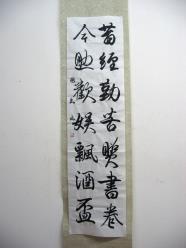 昔經勤苦照書卷
今助歡娛飄酒盃